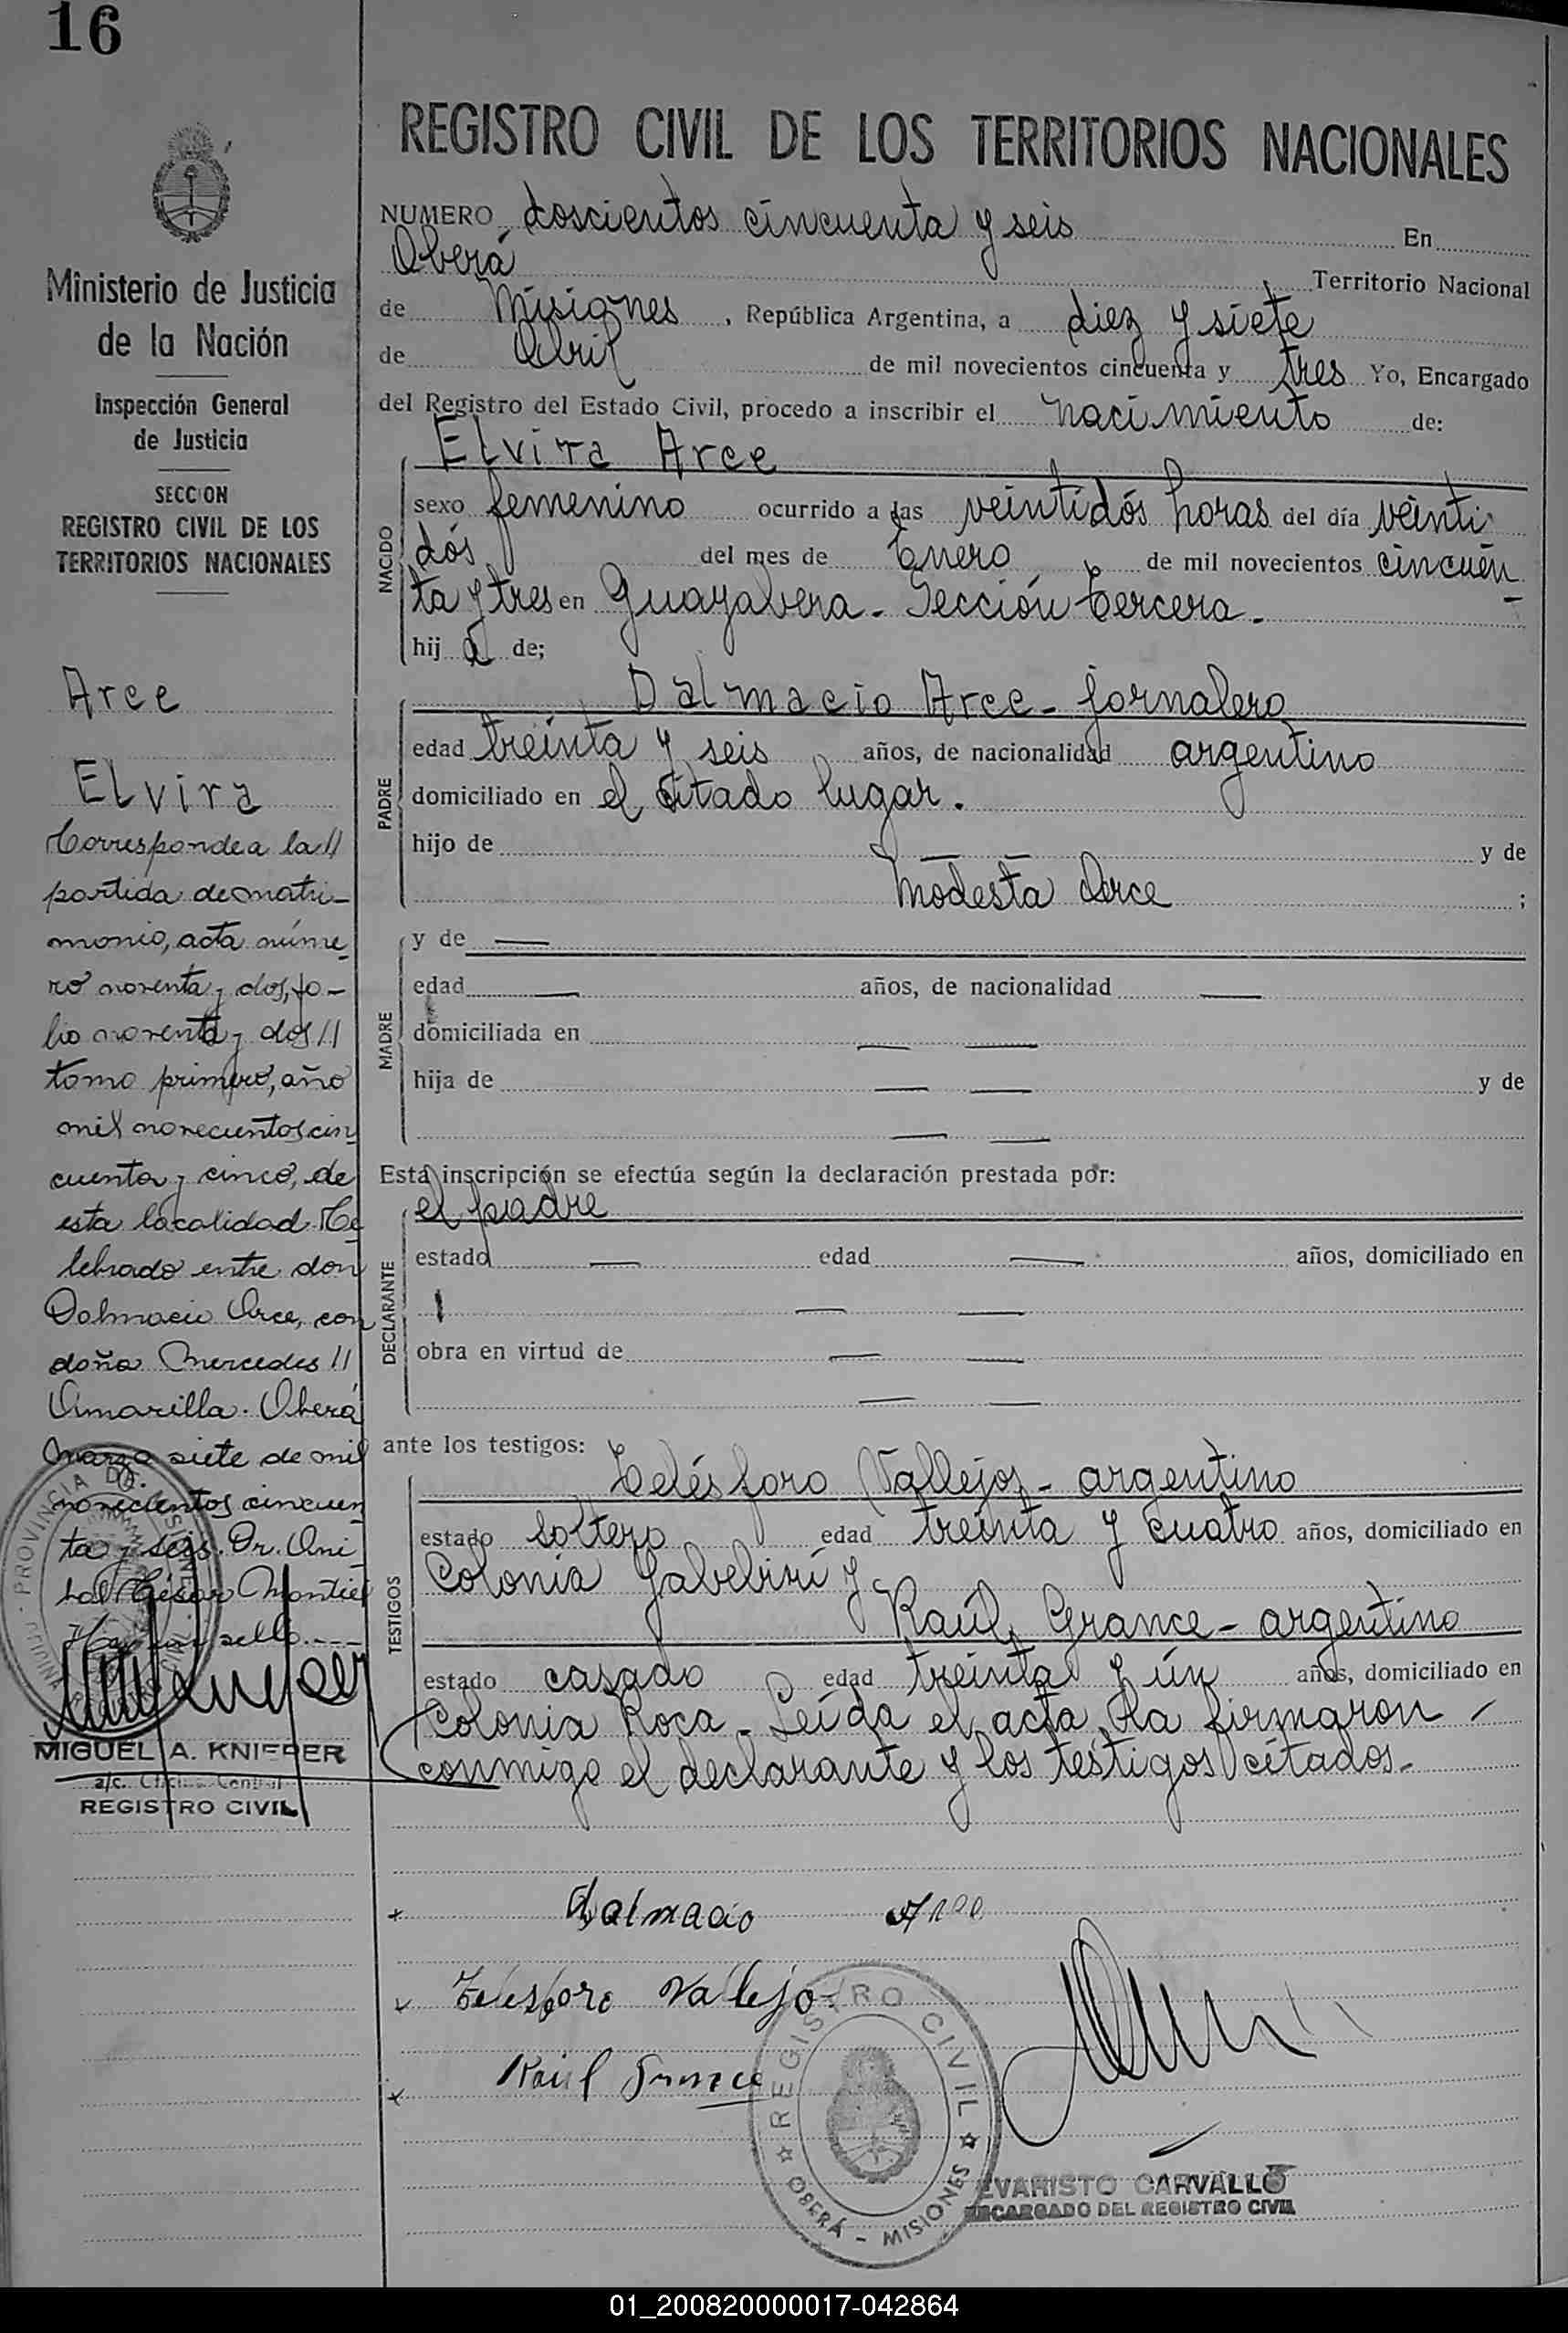 16
REGISTRO CIVIL DE LOS TERRITORIOS NACIONALES
NUMERO doscientos cincuenta y seis En
Oberá Territorio Nacional
de Misiones, República Argentina, a diez y siete
de Abril de mil novecientos cincuenta y tres Yo, Encargado
del Registro del Estado Civil, procedo a inscribir el nacimiento de:
Elvira Arce
NACIDO
sexo femenino ocurrido a las veintidós horas del día veinti
dós del mes de Enero de mil novecientos cincuen
ta y tres en Guayabera - Sección Tercera.
hij a de;
PADRE
Dalmacio Arce - jornalero
edad treinta y seis años, de nacionalidad argentino
domiciliado en el citado lugar.
hijo de — — y de
Modesta Arce ;
MADRE
y de —
edad — años, de nacionalidad —
domiciliada en — —
hija de — — y de
— —
Esta inscripción se efectúa según la declaración prestada por:
DECLARANTE
el padre
estado — edad — años, domiciliado en
— —
obra en virtud de — —
— —
ante los testigos:
TESTIGOS
Telésforo Vallejos - argentino
estado soltero edad treinta y cuatro años, domiciliado en
Colonia Yabebirí y
Raúl Grance - argentino
estado casado edad treinta y ún años, domiciliado en
Colonia Roca - Leída el acta, la firmaron -
conmigo el declarante y los testigos citados.-
Dalmacio Arce
Telesforo Vallejo
Raúl Grance
REGISTRO CIVIL
OBERÁ - MISIONES
EVARISTO CARVALLO
ENCARGADO DEL REGISTRO CIVIL
Ministerio de Justicia
de la Nación
Inspección General
de Justicia
SECCION
REGISTRO CIVIL DE LOS
TERRITORIOS NACIONALES
Arce
Elvira
Corresponde a la //
partida de matri-
monio, acta núme-
ro noventa y dos, fo-
lio noventa y dos //
tomo primero, año
mil novecientos cin
cuenta y cinco, de
esta localidad. Ce-
lebrado entre don
Dalmacio Arce, con
doña Mercedes //
Amarilla. Oberá
Marzo siete de mil
novecientos cincuen
ta y seis. Dr. Aní-
bal César Montiel
Hay un sello.----
PROVINCIA DE MISIONES
MIGUEL A. KNIEPER
a/c. Oficina Central
REGISTRO CIVIL
01_200820000017-042864